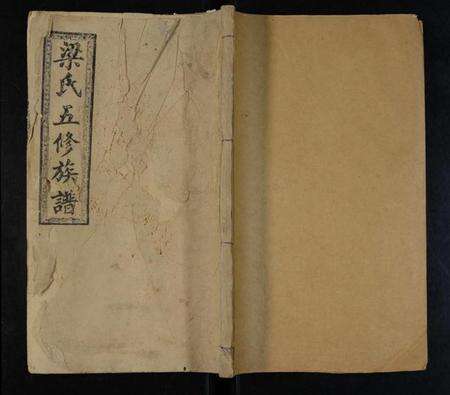 梁氏五修族譜